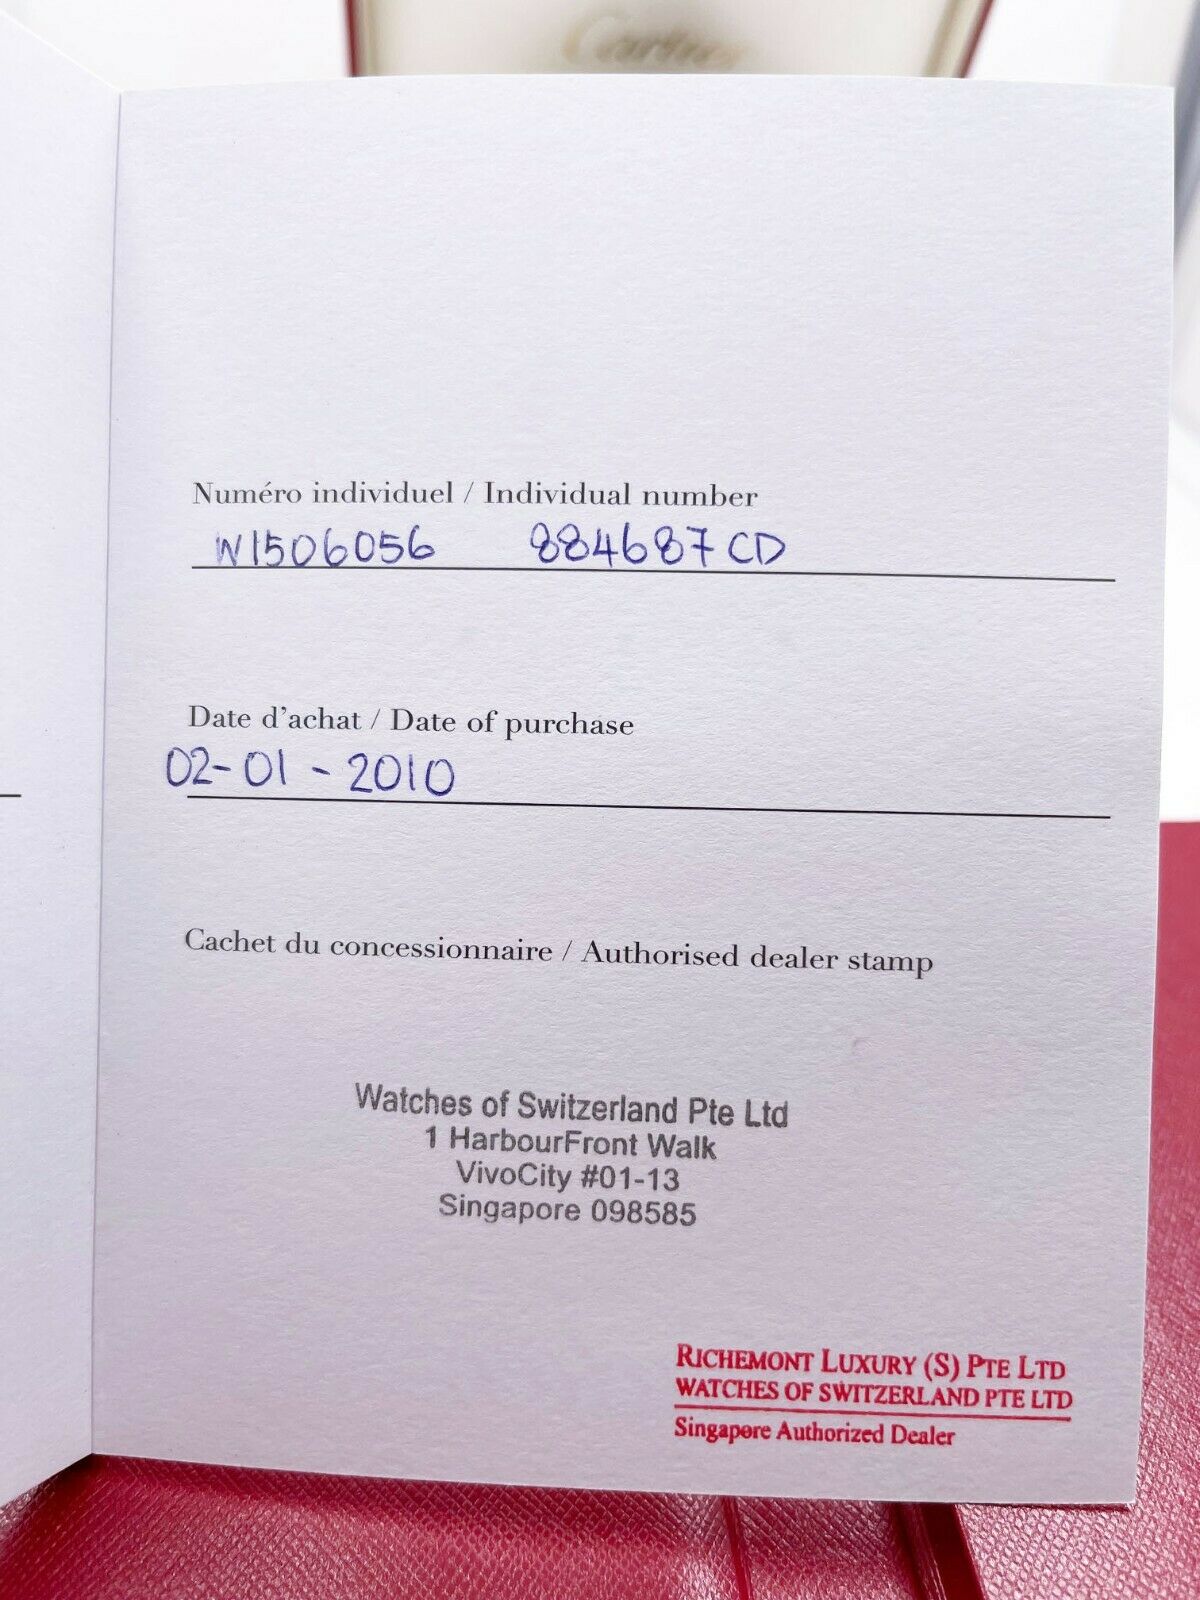 Cartier
Numéro individuel / Individual number
W1506056 884687CD
Date d'achat / Date of purchase
02-01-2010
Cachet du concessionnaire / Authorised dealer stamp
Watches of Switzerland Pte Ltd
1 HarbourFront Walk
VivoCity #01-13
Singapore 098585
RICHEMONT LUXURY (S) PTE LTD
WATCHES OF SWITZERLAND PTE LTD
Singapore Authorized Dealer